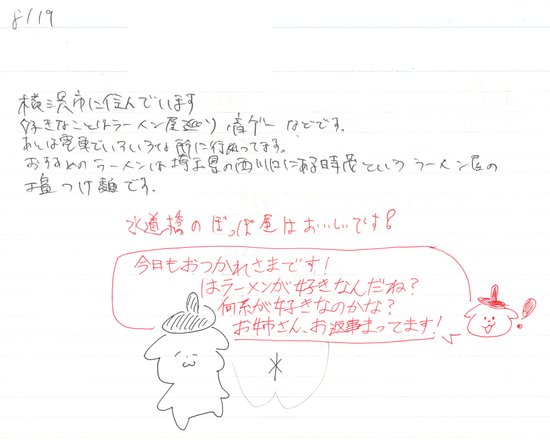 8/19
横浜市に住んでいます
好きなことはラーメン屋巡り、音ゲーなどです。
あとは電車でいろいろな所に行ってます。
おすすめのラーメンは埼玉県の西川口にある時茂というラーメン屋の
塩つけ麺です。
水道橋のぽっぽ屋はおいしいです!
今日もおつかれさまです!
はラーメンが好きなんだね?
何系が好きなのかな?
お姉さん、お返事まってます!